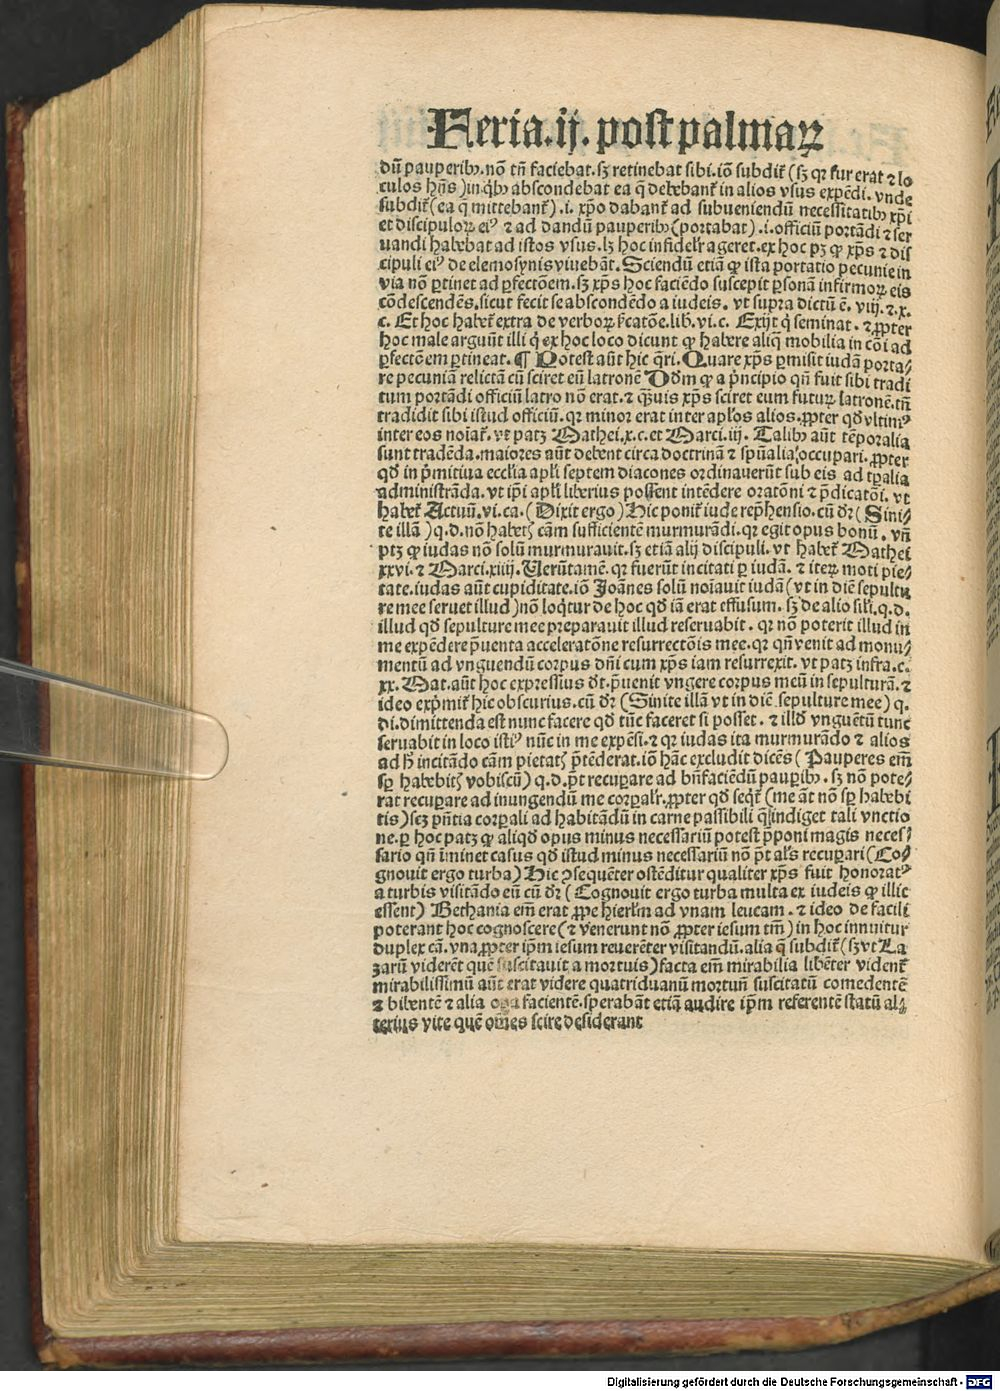 Feria.ij. post palmaꝝ
dū pauperibꝰ.nō tn̄ faciebat.sꝫ retinebat sibi.iō subdit̄ (sꝫ qꝛ fur erat ⁊ lo
culos hn̄s)in q̇bꝰ abscondebat ea q̄ debebant̄ in alios vsus expēdi. vnde
subdit̄(ea q̄ mittebant̄).i. xp̄o dabant̄ ad subueniendū necessitatibꝰ xp̄i
et discipuloꝝ eiꝰ ⁊ ad dandū pauperibꝰ(portabat).i.officiū portādi ⁊ ser
uandi habebat ad istos vsus.lꝫ hoc infidelr̄ ageret.ex hoc pꝫ ꝙ xp̄s ⁊ dis
cipuli eiꝰ de elemosynis viuebāt. Sciendū etiā ꝙ ista portatio pecunie in
via nō ꝑtinet ad ꝑfectōem.sꝫ xp̄s hoc faciēdo suscepit ꝑsonā infirmoꝝ eis
cōdescendēs.sicut fecit se abscondēdo a iudeis. vt supra dictū ē. viij.⁊.x.
c. Et hoc habet̄ extra de verboꝝ sīcatōe.lib.vi.c. Exijt q̇ seminat. ⁊ ꝓpter
hoc male arguūt illi q̇ ex hoc loco dicunt ꝙ habere aliq̄ mobilia in cōi ad
ꝑfectōem ꝑtineat. ¶ Potest aūt hic q̄ri. Quare xp̄s ꝑmisit iudā porta-
re pecuniā relictā cū sciret eū latronē Dōm ꝙ a pͥncipio qn̄ fuit sibi tradi
tum portādi officiū latro nō erat.⁊ q̄uis xp̄s sciret eum futuꝝ latronē.tn̄
tradidit sibi istud officiū.qꝛ minor erat inter apl̄os alios.ꝓpter qd̄ vltimꝰ
inter eos noīat̄.vt patꝫ Mathei.x.c.et Marci.iij. Talibꝰ aūt tēporalia
sunt tradēda.maiores aūt debent circa doctrinā ⁊ spūalia occupari.ꝓpter
qd̄ in pͥmitiua eccl̄ia apl̄i septem diacones ordinauerūt sub eis ad tꝑalia
administrāda.vt ip̄i apl̄i liberius possent intēdere oratōni ⁊ p̄dicatōi. vt
habet̄ Actuū.vi.ca. (Dixit ergo) Hic ponit̄ iude rep̄hensio.cū dr̄ (Sini-
te illā) q.d.nō habetꝭ cām sufficientē murmurādi.qꝛ egit opus bonū. vn̄
ptꝫ ꝙ iudas nō solū murmurauit.sꝫ etiā alij discipuli.vt habet̄ Mathei
xxvi.⁊ Marci.xiiij. Uerūtamē.qꝛ fuerūt incitati ꝑ iudā.⁊ iteꝝ moti pie-
tate.iudas aūt cupiditate.iō Joānes solū noīauit iudā(vt in diē sepultu
re mee seruet illud)nō loq̇tur de hoc qd̄ iā erat effusum. sꝫ de alio sil̄i.q.d.
illud qd̄ sepulture mee preparauit illud reseruabit. qꝛ nō poterit illud in
me expēdere p̄uenta acceleratōne resurrectōis mee.qꝛ qn̄ venit ad monu-
mentū ad vnguendū corpus dn̄i cum xp̄s iam resurrexit. vt patꝫ infra.c.
xx. Mat.aūt hoc expressius dt̄.p̄uenit vngere corpus meū in sepulturā.⁊
ideo exp̄mit̄ hic obscurius.cū dr̄ (Sinite illā vt in diē sepulture mee) q.
di.dimittenda est nunc facere qd̄ tūc faceret si posset. ⁊ illd̄ vnguētū tunc
seruabit in loco istiꝰ nūc in me expēsi.⁊ qꝛ iudas ita murmurādo ⁊ alios
ad h̄ incitādo cām pietatꝭ p̄tēderat.iō hāc excludit dicēs (Pauperes em̄
sꝑ habebitꝭ vobiscū) q.d.p̄t recuꝑare ad bn̄faciēdū pauꝑibꝰ. sꝫ nō pote-
rat recuꝑare ad inungendū me corꝑalr̄.ꝓpter qd̄ seqt̄ (me āt nō sꝑ habebi
tis)scꝫ p̄ntia corꝑali ad habitādū in carne passibili q̄ indiget tali vnctio
ne.ꝑ hoc patꝫ ꝙ aliqd̄ opus minus necessariū potest p̄poni magis neces-
sario qn̄ īminet casus qd̄ istud minus necessariū nō p̄t al̄s recuꝑari (Co-
gnouit ergo turba) Hic ꝯsequēter ostēditur qualiter xp̄s fuit honoratꝰ
a turbis visitādo eū cū dr̄ (Cognouit ergo turba multa ex iudeis ꝙ illic
essent) Bethania em̄ erat ꝓpe hierl̄m ad vnam leucam. ⁊ ideo de facili
poterant hoc cognoscere(⁊ venerunt nō ꝓpter iesum tm̄) in hoc innuitur
duplex cā.vna ꝓpter ip̄m iesum reuerēter visitandū.alia q̄ subdit̄ (sꝫ vt La
zarū viderēt quē suscitauit a mortuis)facta em̄ mirabilia libēter vident̄
mirabilissimū aūt erat videre quatriduanū mortuū suscitatū comedentē
⁊ bibentē ⁊ alia oꝑa facientē.sperabāt etiā audire ip̄m referentē statū al-
terius vite quē oēs scire desiderant
Digitalisierung gefördert durch die Deutsche Forschungsgemeinschaft - DFG